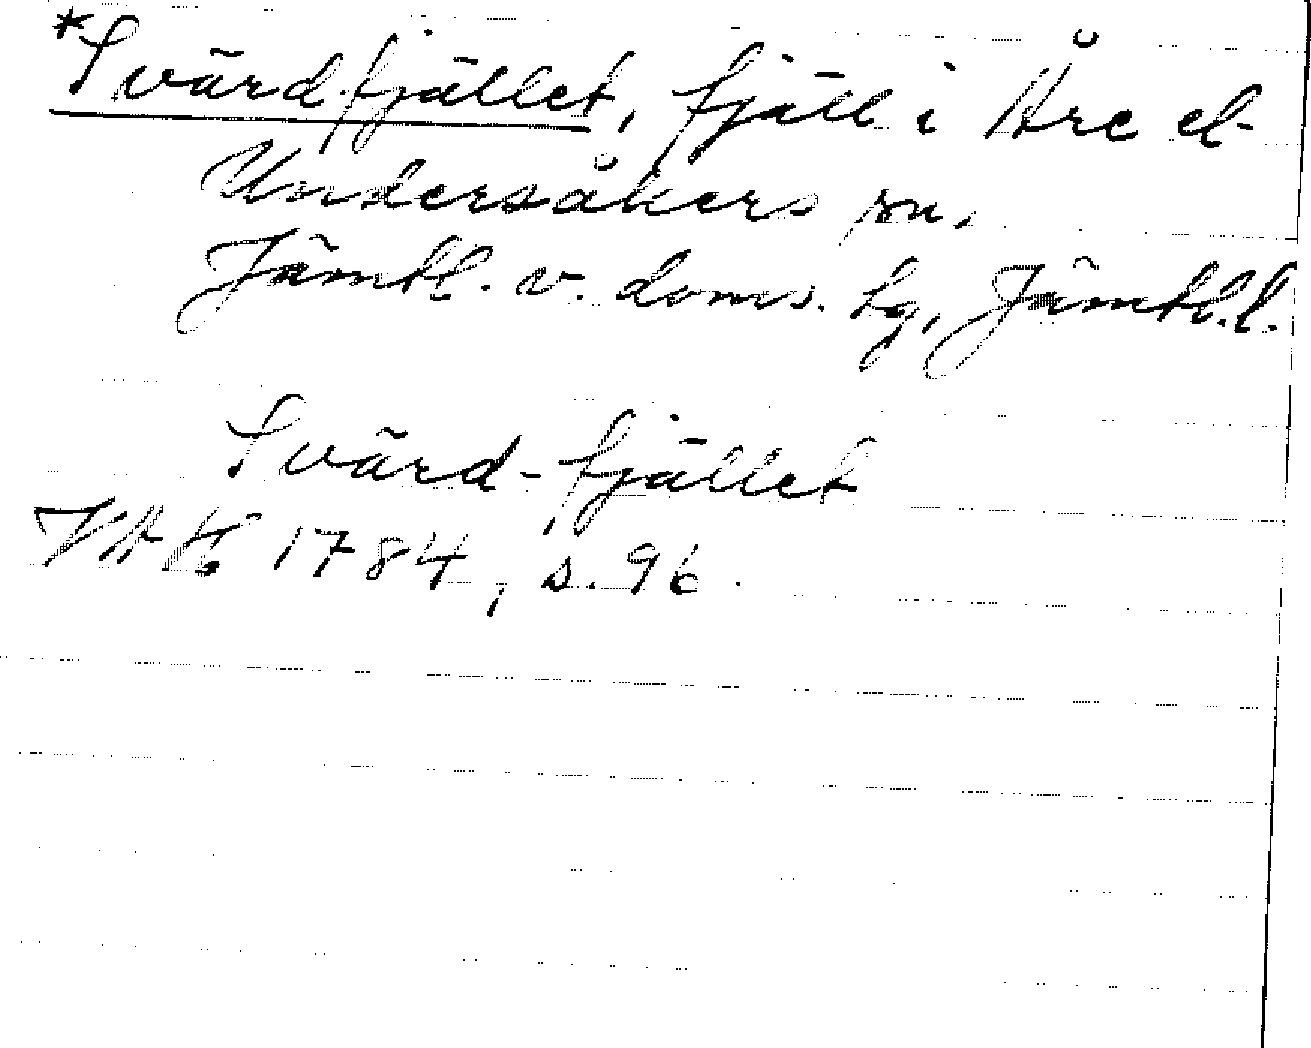 *Svärdfjället, fjäll i Åre el.
Undersåkers sn.
Jämtl. v. doms. tg, Jämtl. l.
Svärd-fjället
VAH 1784, s. 96.